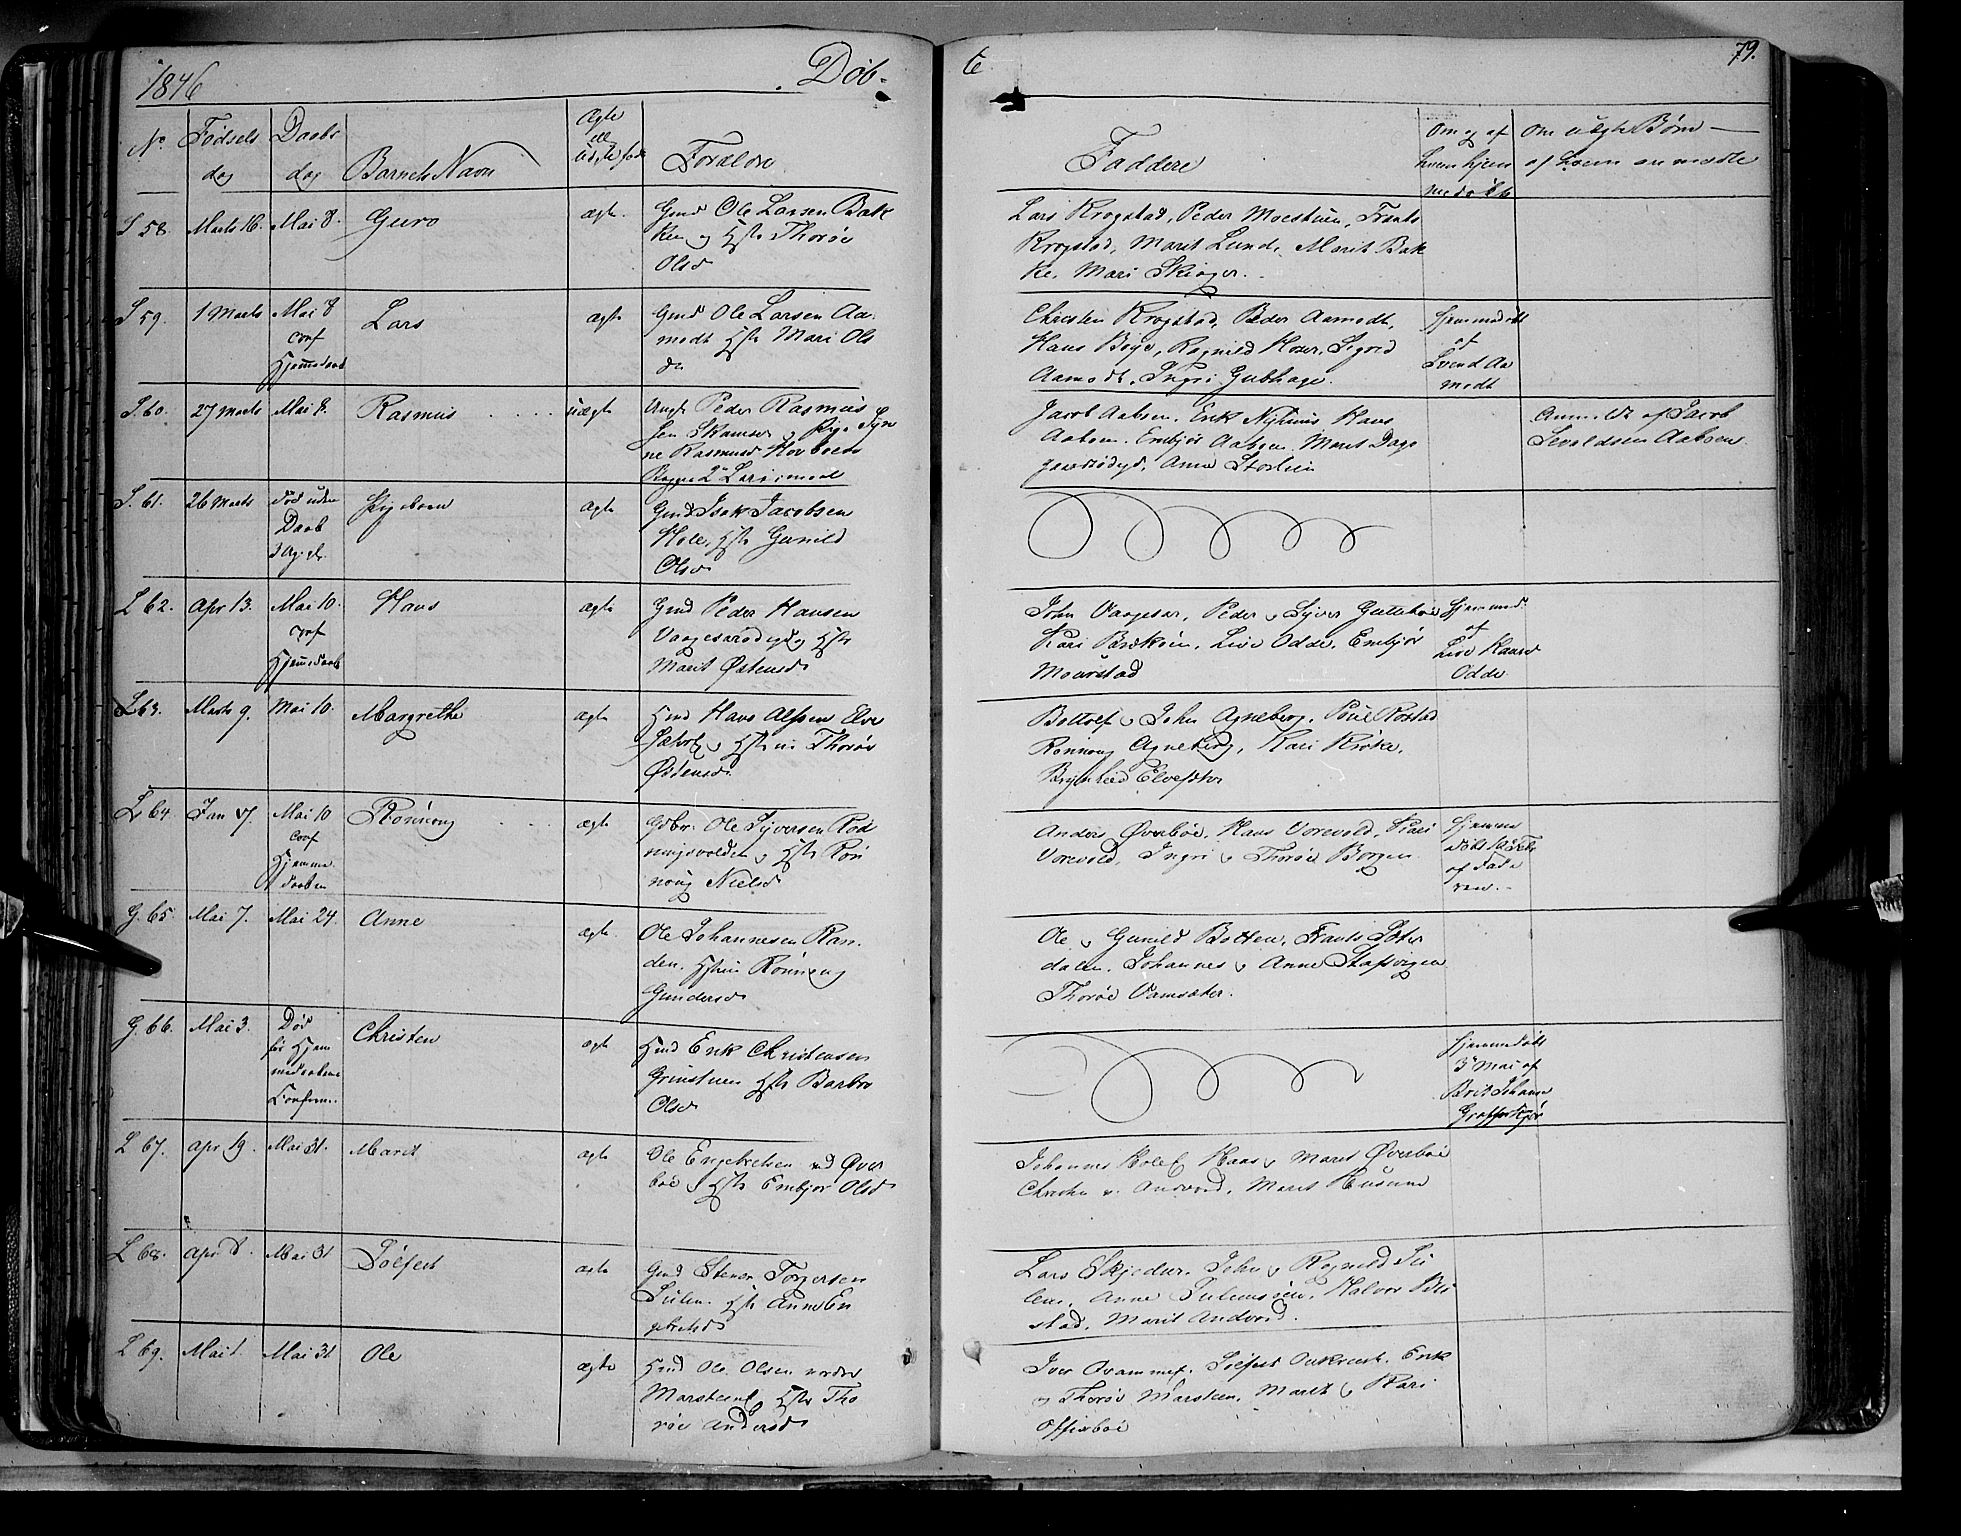 1846
Døb-
te
79.
No
Fødsels
dag
Daabs
dag
Barnets Navn
Ægte
ell
Uægte fød
Foreldre
Faddere
Om og af
hvem hjem
medøbt
Om uægte Børn —
af hvem anmeldte
S 58. Marts 16. Mai 8. Guro ægte.
Gmd Ole Larsen Bak
ken og Hstr Thorøe
Olsd
Lars Krogstad, Peder Moestuen, Frants
Krogstad, Marit Lunde, Marit Bak
ke, Mari Skiager.
S 59. 1 Marts Mai 8
conf
Hjemmedaab
Lars ægte
Gmd Ole Larsen Aa-
modt Hstr Mari Ols
dr
Christen Krogstad, Peder Aamodt,
Hans Boye, Ragnild Hoser, Sigrid
Aamodt, Ingri Gubhage.
hjemmedøbt
af
Svend Aa
modt
S. 60. 27 Marts Mai 8. Rasmus uægte
Ungk Peder Rasmus
sen Skamsar, Pige Syn
ne Rasmusd Hovboen
Begge 2d Leiermaal
Jacob Aabsen, Erik Nyhuus Hans
Aabsen, Embjør Aabsen, Marit Dags
gaardsødegd, Anne Storlien
Anmeldt af Jacob
Sevaldsen Aabsen.
S. 61. 26 Marts
død uden
Daab
Pigebarn ægte
Gmd Isak Jacobsen
Hole, Hstr Gunild
Olsd
L 62. Apr 13. Mai 10.
conf
Hjemmedaab
Hans ægte
Gmd Peder Hansen
Vaagesarødegd, Hstr
Marit Østensd
John Vaagesar, Peder & Syver Gullebøe
Kari Brækøen, Live Odde, Embjør
Mourstad
hjemmed.
af
Live Haarsd
Odde
L 63. Marts 9. Mai 10. Margrethe ægte
Hmd Hans Alfsen Elve
sæter, Hstruu Thorøe
Østensd.
Bottolf & John Agneberg, Poul Rostad
Rønnoug Agneberg, Kari Krøke,
Brynhild Elvesæter
L 64. Jan 7. Mai 10
conf
Hjemme
daaben
Rønnoug ægte
Gdbr. Ole Syversen Rød
ningsvolden, Hstr Røn
noug Nielsd
Anders Øverbøe, Hans Vorevold, Kari
Vorevold, Ingri & Thorøe Borgen
hjemme
døbt
af Fade
ren.
G. 65. Mai 7. Mai 24. Anne ægte.
Ole Johannesen Ran-
den. Hstruu Rønnoug
Gundersd
Ole & Gunild Botten, Frants Øster
dalen, Johannes & Anne Stafsvigen
Thorøe Vamsæter.
G. 66. Mai 3.
Død
før Hjem
medaabens
Confirm.
Christen ægte
Hmd Erik Christensen
Grinstuen Hstr Barbro
Olsd
hjemmedøbt
3 Mai af
Brit Johans
L 67. Apr 19. Mai 31. Marit ægte
Ole Engebretsen ved Øver
bøe, Hstr Embjør Olsd
Johannes Hole, Hans & Marit Øverbøe
Christen v. Andvord, Marit Huusum
L 68. Apr. 8. Mai 31 Sølfest ægte
Gmd Stener Torgersen
Sulen. Hstr Anne En
gebretsd
Lars Skjeder, John & Ragnild Su
len, Anne Sulemsøen, Halvor Blı
stad, Marit Andvord.
L 69. Mai 1. Mai 31. Ole ægte
Hmd Ole Olsen nordre
Marsteen, Hstr Tho
røe Andersd
Iver Qvamme, Sølfest Aukrust, Erik
og Thorøe Marsteen, Marit & Kari
Offerbøe